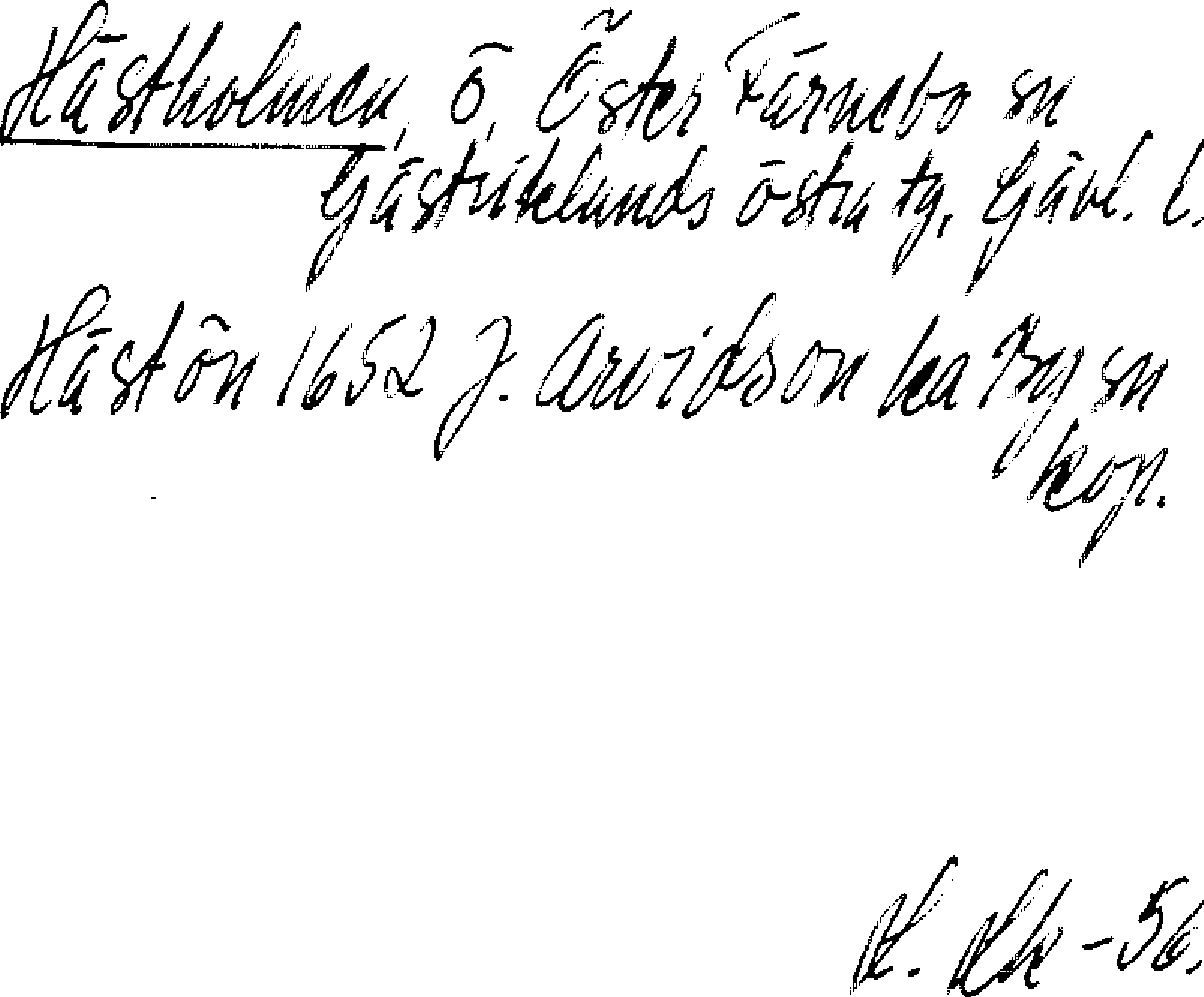 Hästholmen, ö, Öster Färnebo sn
Gästriklands östra tg, Gävl. l.
Hästön 1652 J. Arvidson ka By sn
kop.
-56.